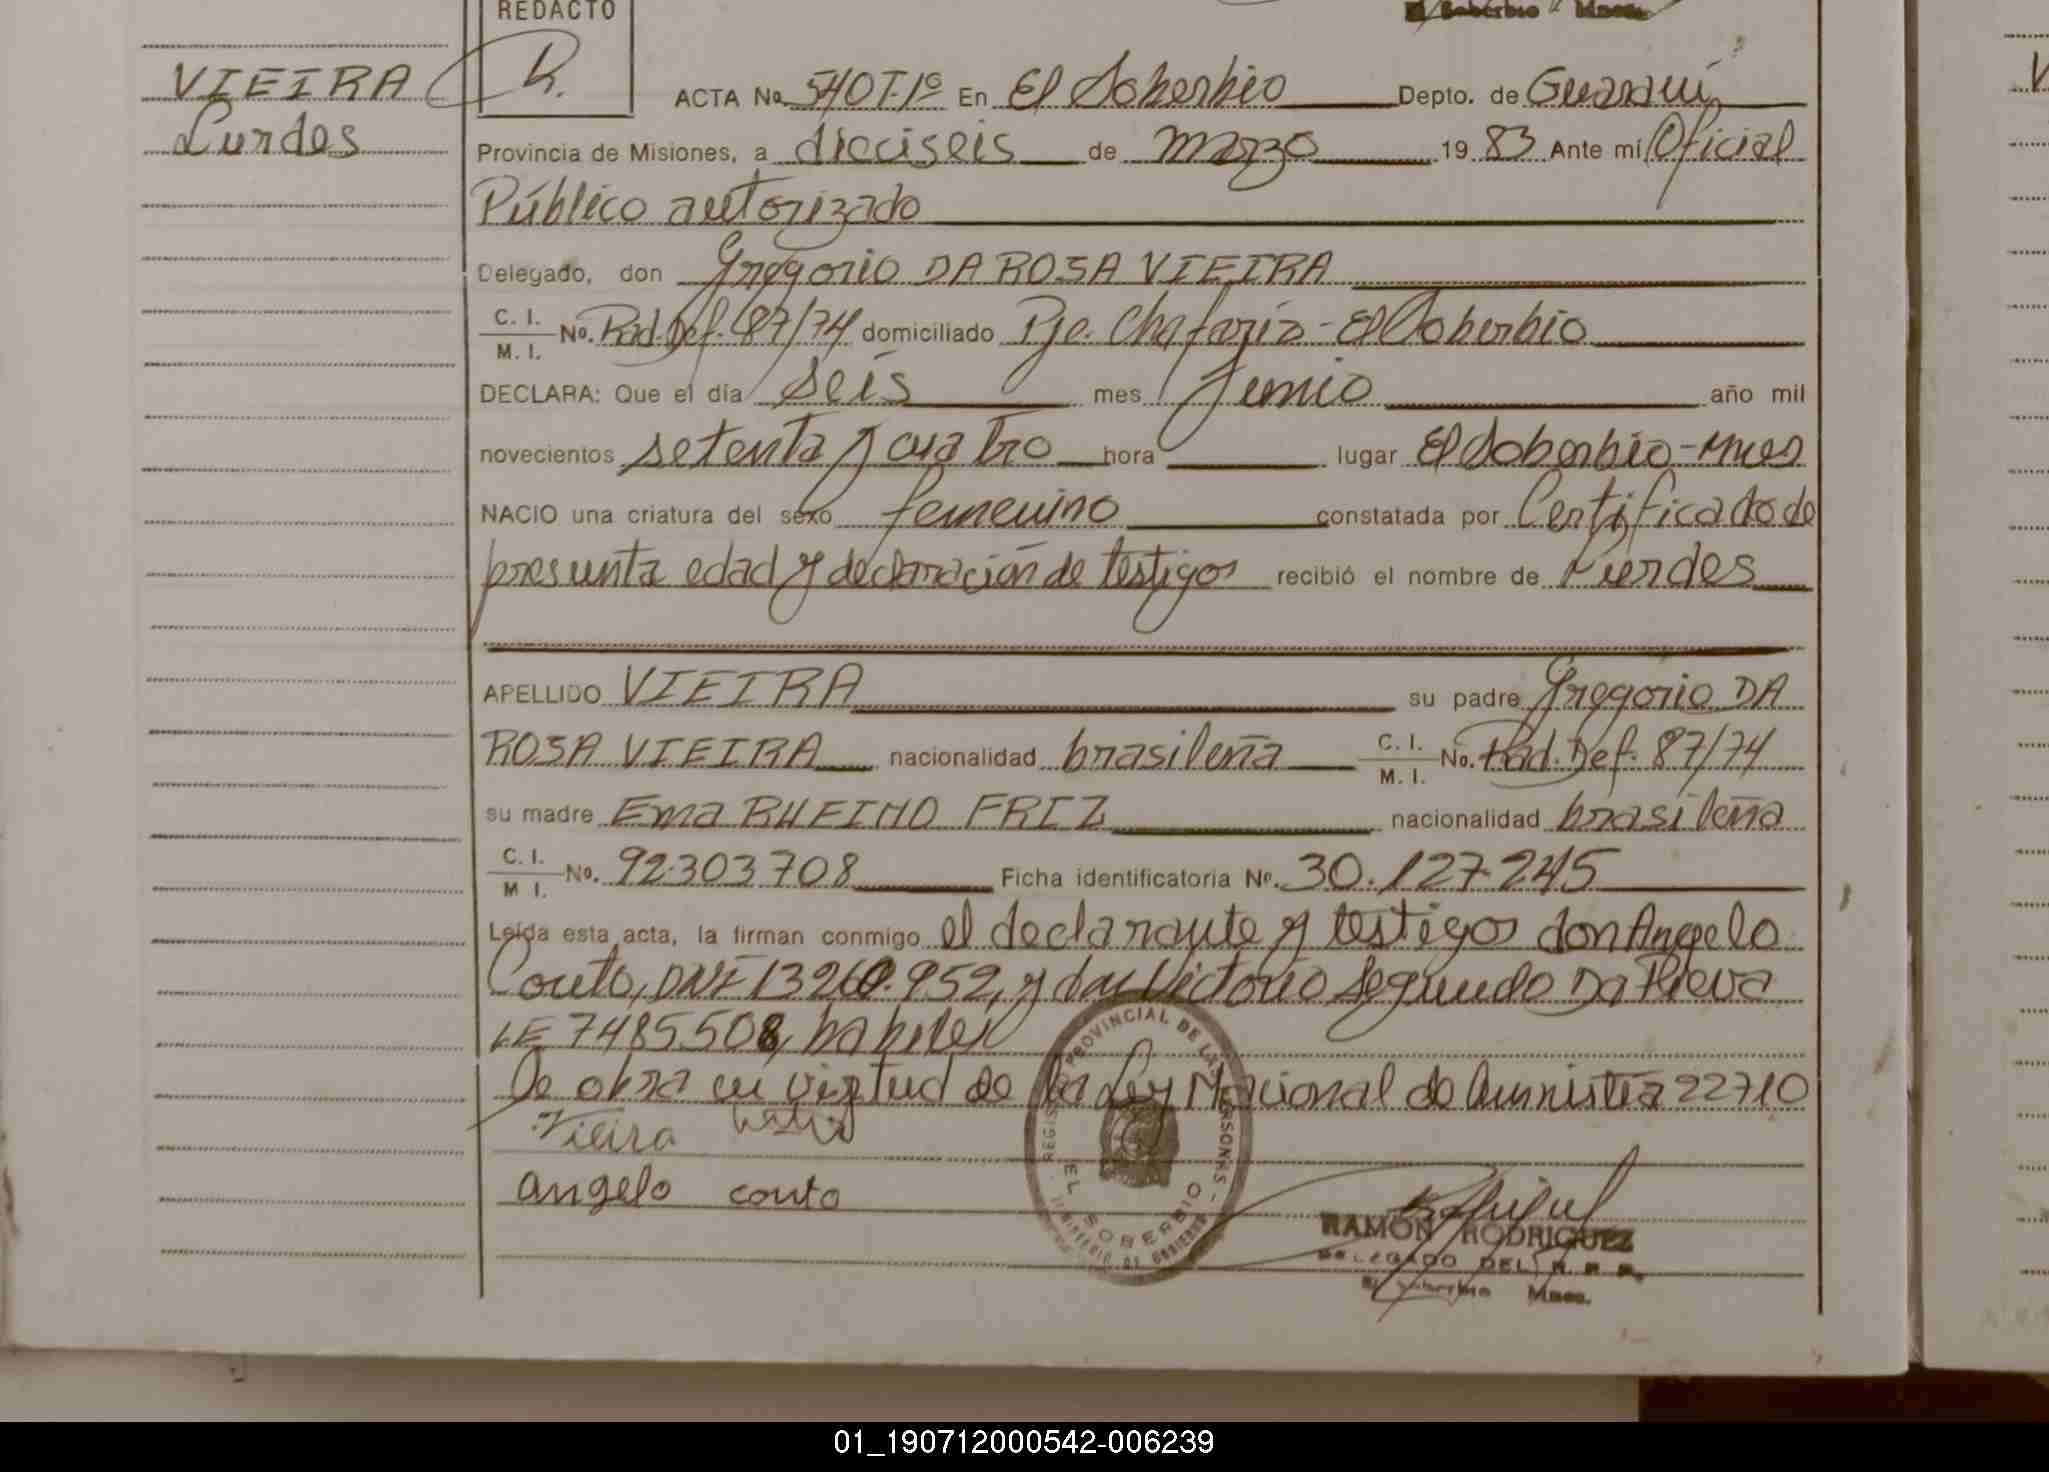 REDACTO
El Soberbio Mnes.
VIEIRA
Lurdes
ACTA No. 540 T-1º En El Soberbio Depto. de Guaraní
Provincia de Misiones, a dieciseis de marzo 19 83 Ante mí Oficial
Público autorizado
Delegado, don Gregorio DA ROSA VIEIRA
C. I. M. I. No. Rad. Def. 87/74 domiciliado Pje. Chafariz - El Soberbio
DECLARA: Que el día seis mes Junio año mil
novecientos setenta y cuatro hora lugar El Soberbio - Mnes
NACIO una criatura del sexo femenino constatada por Certificado de
presunta edad y declaración de testigos recibió el nombre de Lurdes
APELLIDO VIEIRA su padre Gregorio DA
ROSA VIEIRA nacionalidad brasileña C. I. M. I. No. Rad. Def. 87/74
su madre Ema RHEINO FRIZ nacionalidad brasileña
C. I. M I. No. 92.303.708 Ficha identificatoria No. 30.127.245
Leída esta acta, la firman conmigo el declarante y testigos don Angelo
Couto, DNI 13260.952, y don Victorio Segundo Da
LE 7485508, habiles
Se obra en virtud de la Ley Nacional de Amnistía 22710
Vieira
angelo couto
REGISTRO PROVINCIAL DE LAS PERSONAS
EL SOBERBIO
MINISTERIO DE GOBIERNO
RAMON RODRIGUEZ
DELEGADO DEL R. P. P.
El Soberbio Mnes.
01_190712000542-006239